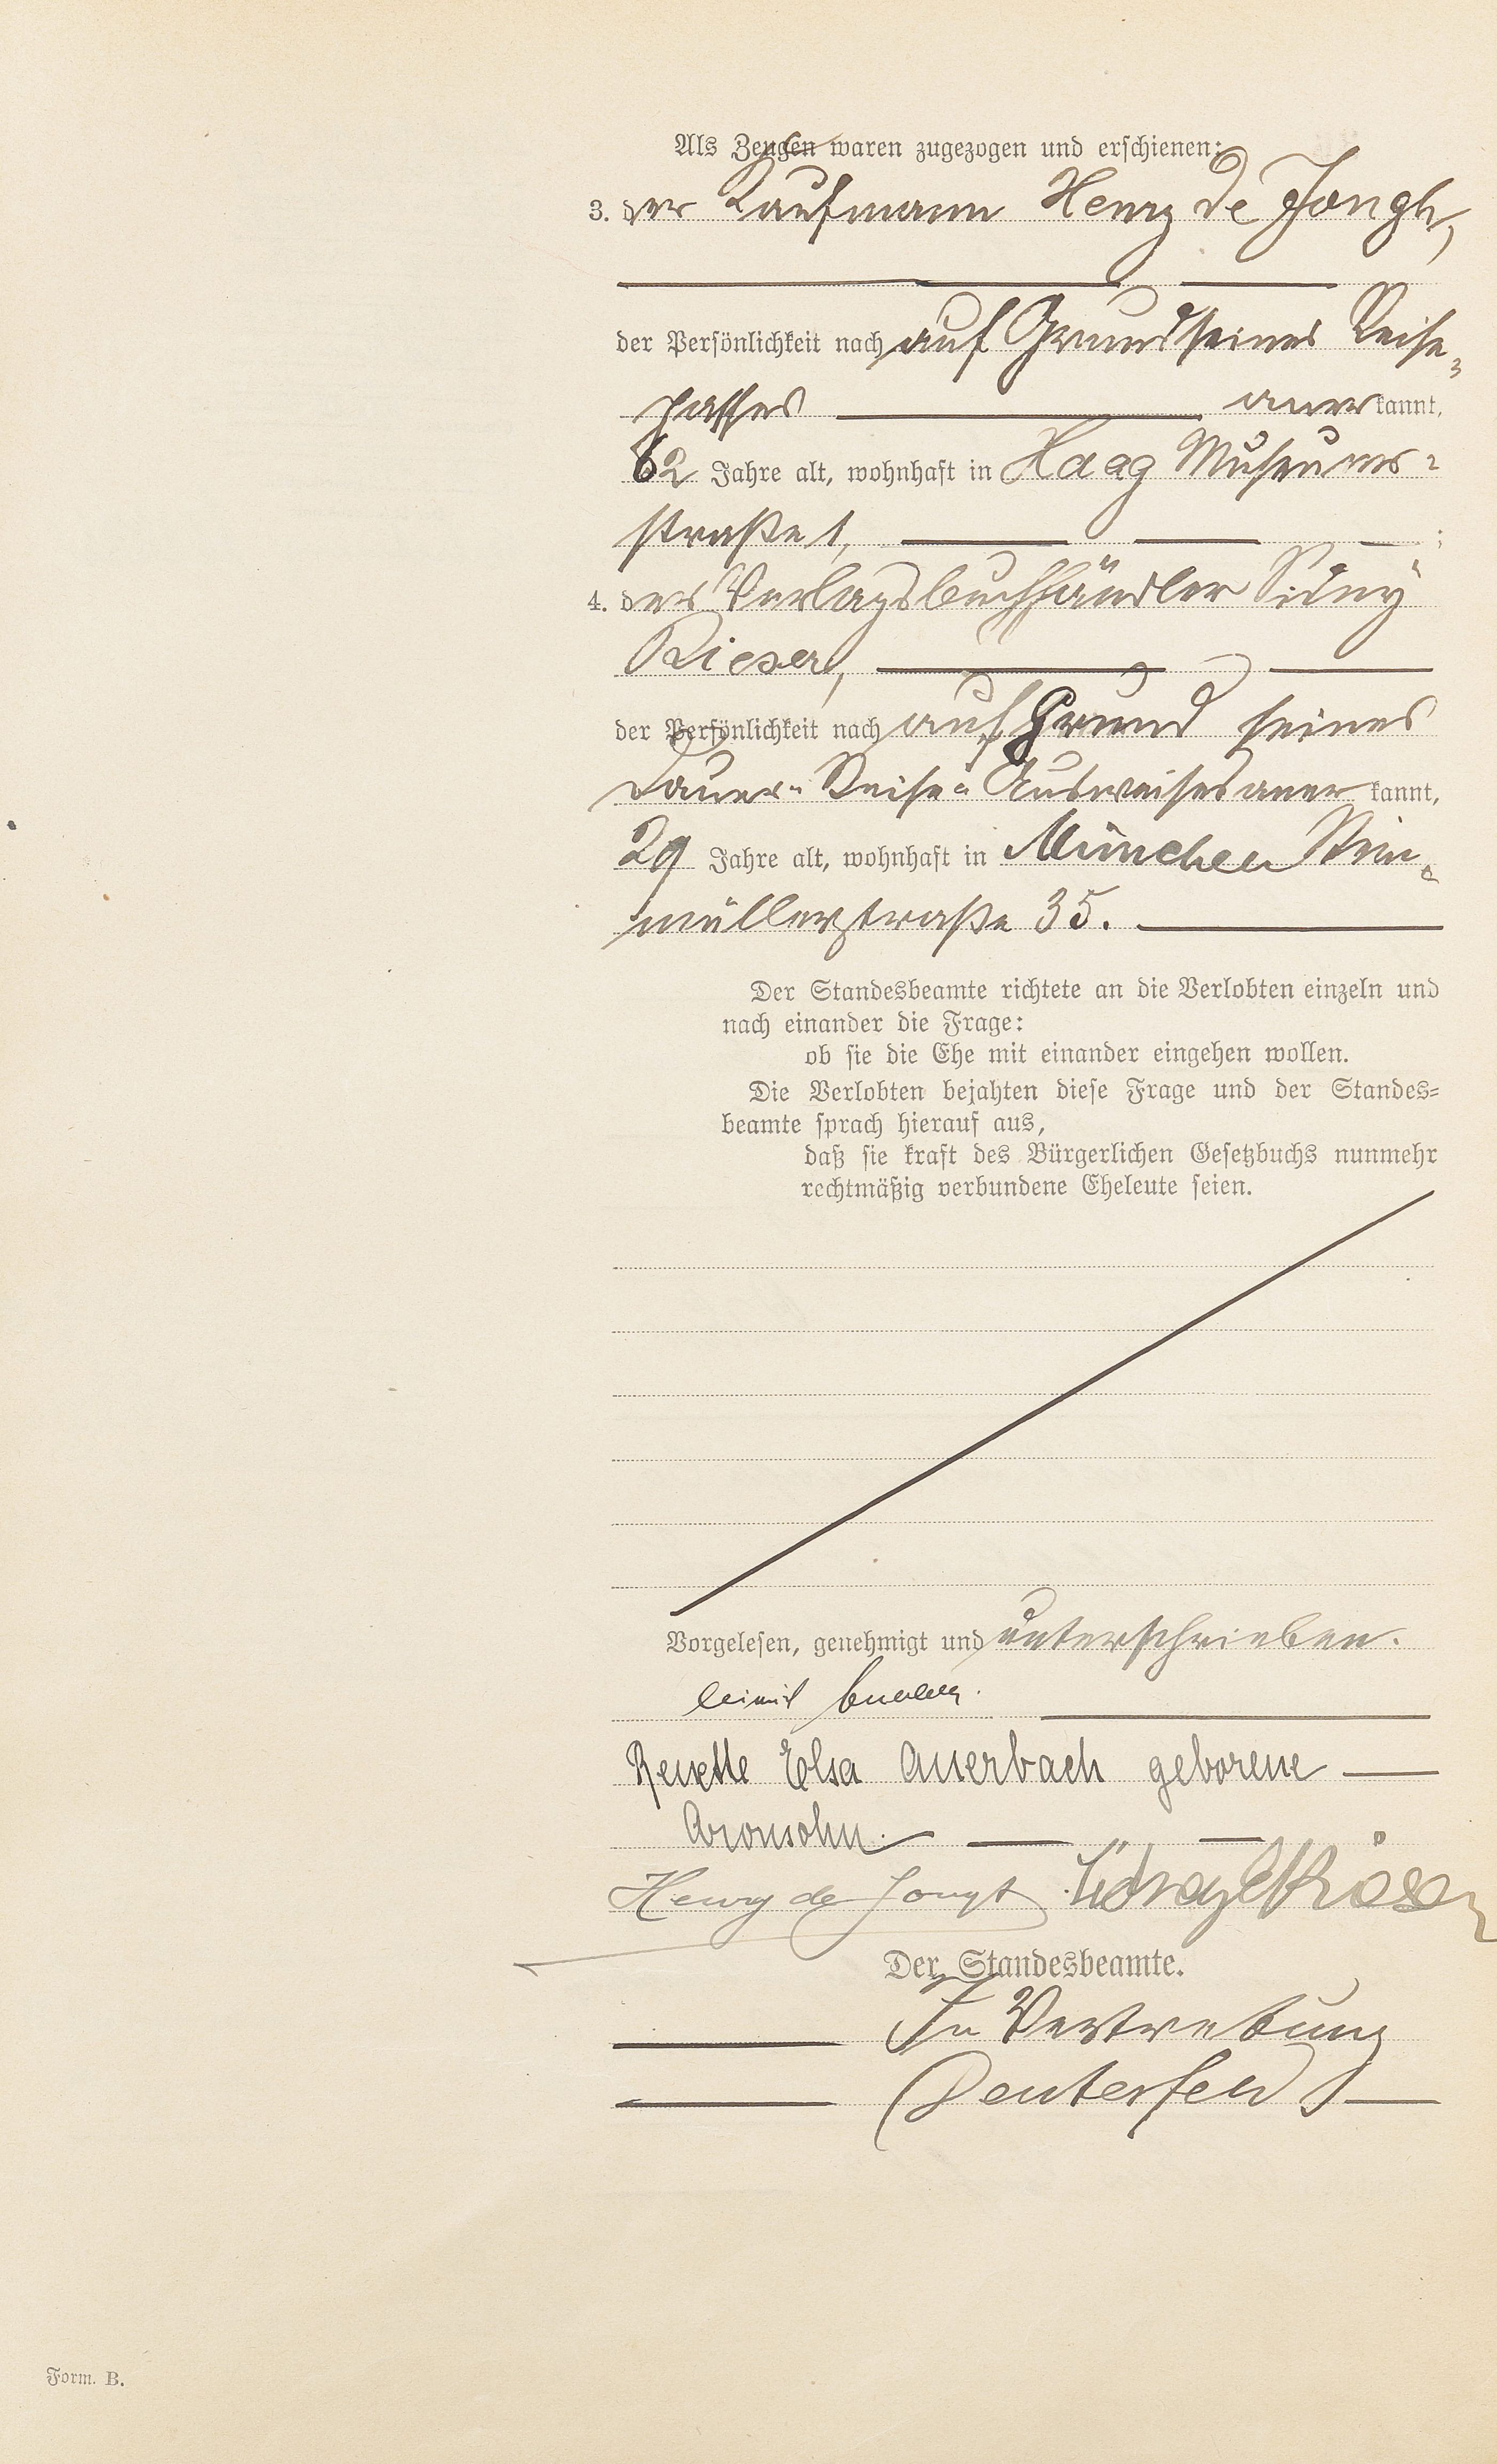 Als Zeugen waren zugezogen und erschienen:
3. der Kaufmann Henry de Jongh,
der Persönlichkeit nach auf Grund seines Reise-
passes anerkannt,
62 Jahre alt, wohnhaft in Haag Museums-
straße 1, ;
4. der Verlagsbuchhändler Sidney
Rieser,
der Persönlichkeit nach auf Grund seines
Dauer-Reise-Ausweises anerkannt,
29 Jahre alt, wohnhaft in München
müllerstraße 35.
Der Standesbeamte richtete an die Verlobten einzeln und
nach einander die Frage:
ob sie die Ehe mit einander eingehen wollen.
Die Verlobten bejahten diese Frage und der Standes-
beamte sprach hierauf aus,
daß sie kraft des Bürgerlichen Gesetzbuchs nunmehr
rechtmäßig verbundene Eheleute seien.
Vorgelesen, genehmigt und unterschrieben.
Renette Elsa Auerbach geborene
Aronsohn.
Henry de Jongh Sidney Rieser
Der Standesbeamte.
In Vertretung
Deuterfeld
Form. B.